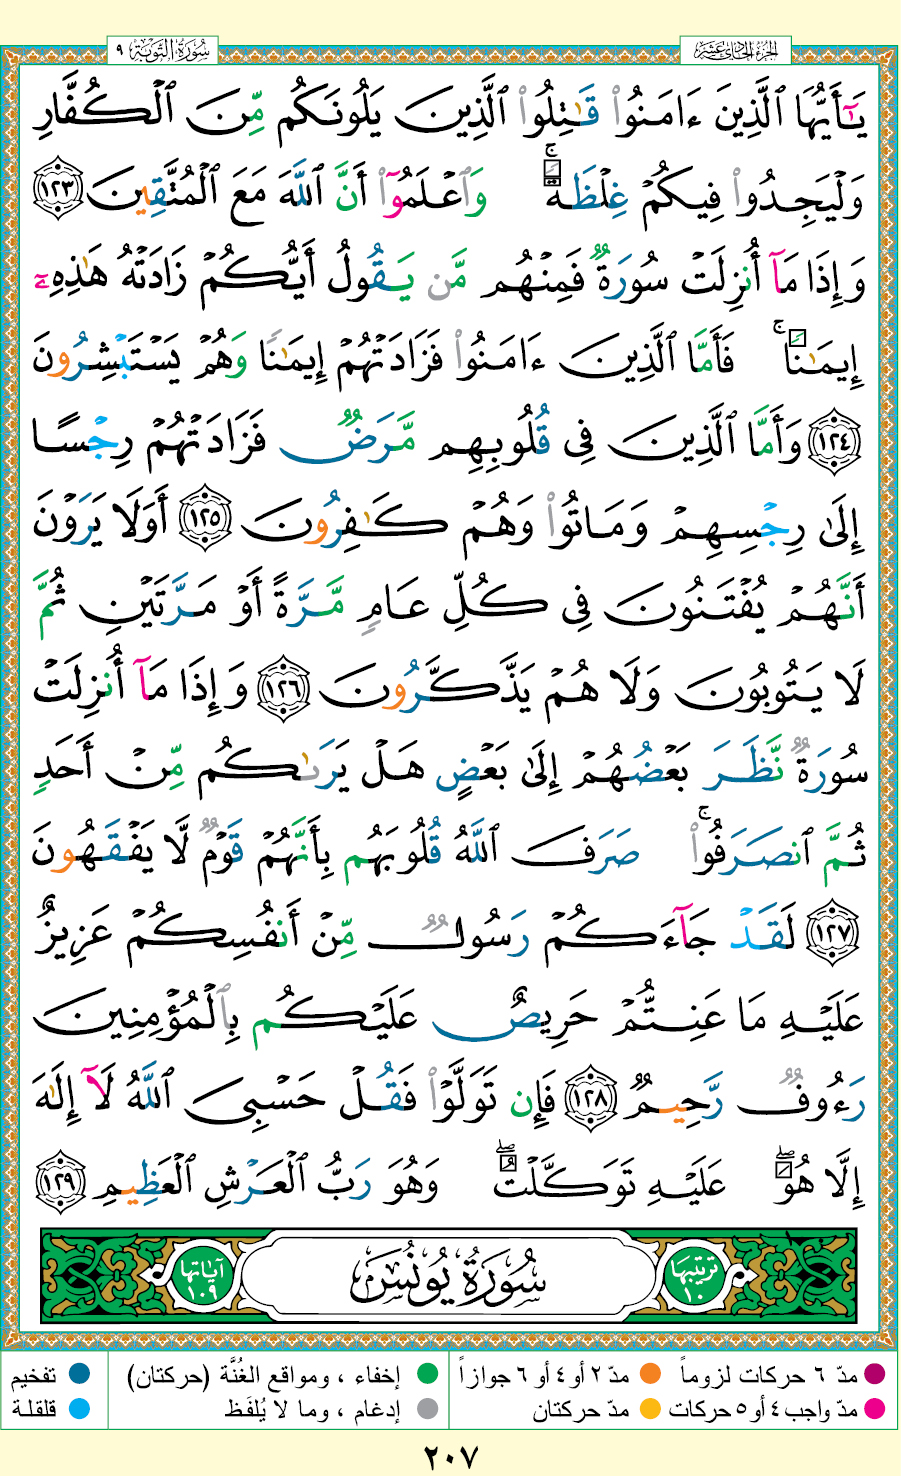 الجزء الحادي عشر
سورة التوبة ٩
يَٰٓأَيُّهَا ٱلَّذِينَ ءَامَنُوا۟ قَٰتِلُوا۟ ٱلَّذِينَ يَلُونَكُم مِّنَ ٱلْكُفَّارِ
وَلْيَجِدُوا۟ فِيكُمْ غِلْظَةً ۚ وَٱعْلَمُوٓا۟ أَنَّ ٱللَّهَ مَعَ ٱلْمُتَّقِينَ ١٢٣
وَإِذَا مَآ أُنزِلَتْ سُورَةٌ فَمِنْهُم مَّن يَقُولُ أَيُّكُمْ زَادَتْهُ هَٰذِهِۦٓ
إِيمَٰنًا ۚ فَأَمَّا ٱلَّذِينَ ءَامَنُوا۟ فَزَادَتْهُمْ إِيمَٰنًا وَهُمْ يَسْتَبْشِرُونَ
١٢٤ وَأَمَّا ٱلَّذِينَ فِى قُلُوبِهِم مَّرَضٌ فَزَادَتْهُمْ رِجْسًا
إِلَىٰ رِجْسِهِمْ وَمَاتُوا۟ وَهُمْ كَٰفِرُونَ ١٢٥ أَوَلَا يَرَوْنَ
أَنَّهُمْ يُفْتَنُونَ فِى كُلِّ عَامٍ مَّرَّةً أَوْ مَرَّتَيْنِ ثُمَّ
لَا يَتُوبُونَ وَلَا هُمْ يَذَّكَّرُونَ ١٢٦ وَإِذَا مَآ أُنزِلَتْ
سُورَةٌ نَّظَرَ بَعْضُهُمْ إِلَىٰ بَعْضٍ هَلْ يَرَىٰكُم مِّنْ أَحَدٍ
ثُمَّ ٱنصَرَفُوا۟ ۚ صَرَفَ ٱللَّهُ قُلُوبَهُم بِأَنَّهُمْ قَوْمٌ لَّا يَفْقَهُونَ
١٢٧ لَقَدْ جَآءَكُمْ رَسُولٌ مِّنْ أَنفُسِكُمْ عَزِيزٌ
عَلَيْهِ مَا عَنِتُّمْ حَرِيصٌ عَلَيْكُم بِٱلْمُؤْمِنِينَ
رَءُوفٌ رَّحِيمٌ ١٢٨ فَإِن تَوَلَّوْا۟ فَقُلْ حَسْبِىَ ٱللَّهُ لَآ إِلَٰهَ
إِلَّا هُوَ ۖ عَلَيْهِ تَوَكَّلْتُ ۖ وَهُوَ رَبُّ ٱلْعَرْشِ ٱلْعَظِيمِ ١٢٩
ترتيبها ١٠
سُورَةُ يُونُسَ
آياتها ١٠٩
مدّ ٦ حركات لزوماً
مدّ ٢ أو ٤ أو ٦ جوازاً
إخفاء ، ومواقع الغُنَّة (حركتان)
تفخيم
مدّ واجب ٤ أو ٥ حركات
مدّ حركتان
إدغام ، وما لا يُلفَظ
قلقلة
٢٠٧